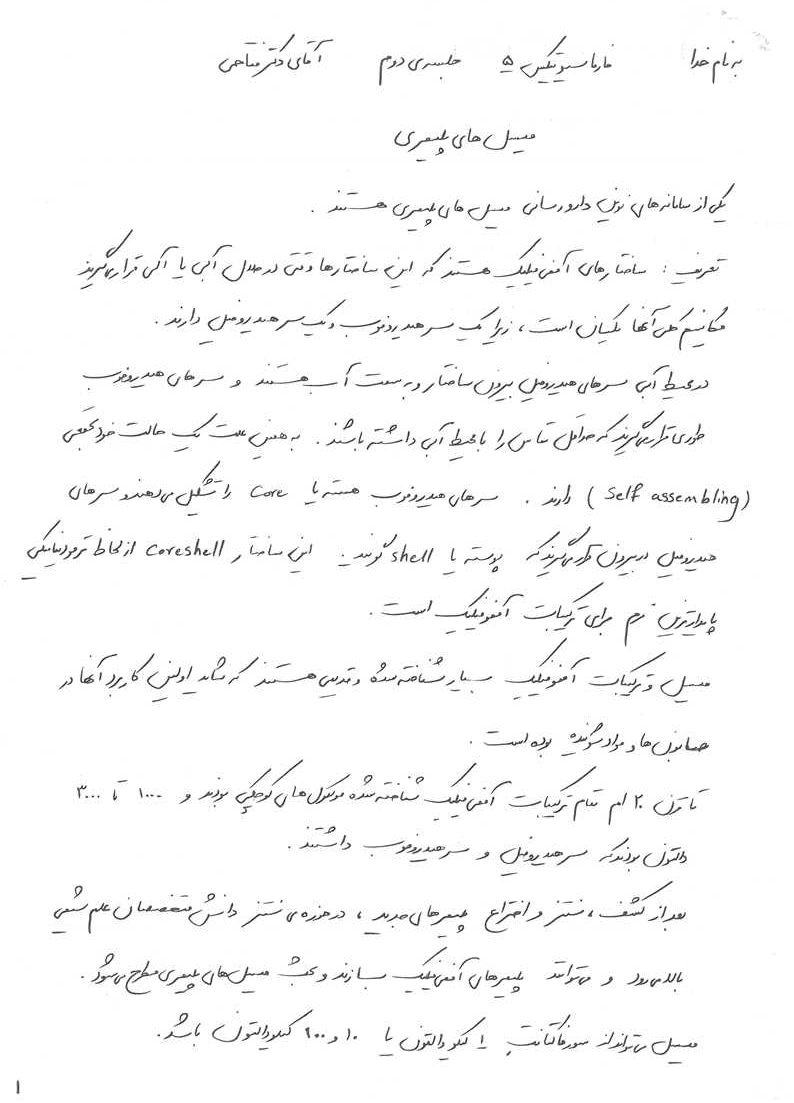 به نام خدا فارماسیوتیکس ۵ جلسه‌ی دوم آقای دکتر فتاحی
میسل های پلیمری
یکی از سامانه‌های نوین دارورسانی میسل های پلیمری هستند .
تعریف : ساختارهای آمفی فیلیک هستند که این ساختارها وقتی در حلال آبی یا آلی قرار می‌گیرند
مکانیسم کلی آنها یکسان است ، زیرا یک سر هیدروفوب و یک سر هیدروفیل دارند .
در محیط آبی سرهای هیدروفیل بیرون ساختار و به سمت آب هستند و سرهای هیدروفوب
طوری قرار می‌گیرند که حداقل تماس را با محیط آبی داشته باشند . به همین علت یک حالت خود تجمعی
(self assembling) دارند . سرهای هیدروفوب هسته یا core را تشکیل می‌دهند و سرهای
هیدروفیل در بیرون قرار می‌گیرند که پوسته یا shell گویند . این ساختار coreshell از لحاظ ترمودینامیکی
پایدارترین فرم برای ترکیبات آمفوفیلیک است .
میسل و ترکیبات آمفوفیلیک بسیار شناخته شده و قدیمی هستند که شاید اولین کاربرد آنها در
صابون ها و مواد شوینده بوده است .
تا قرن ۲۰ ام تمام ترکیبات آمفی فیلیک شناخته شده مولکول های کوچکی بودند و ۱۰۰۰ تا ۳۰۰۰
دالتون بودند که سر هیدروفیل و سر هیدروفوب داشتند .
بعد از کشف ، سنتز و اختراع پلیمرهای جدید ، در حوزه ی سنتز دانش متخصصان علم شیمی
بالا می‌رود و می‌توانند پلیمرهای آمفی فیلیک بسازند و بحث میسل های پلیمری مطرح می‌شود .
میسل می‌تواند از سورفاکتانت ۱ کیلو دالتون یا ۱۰ و ۱۰۰ کیلو دالتون باشد .
۱